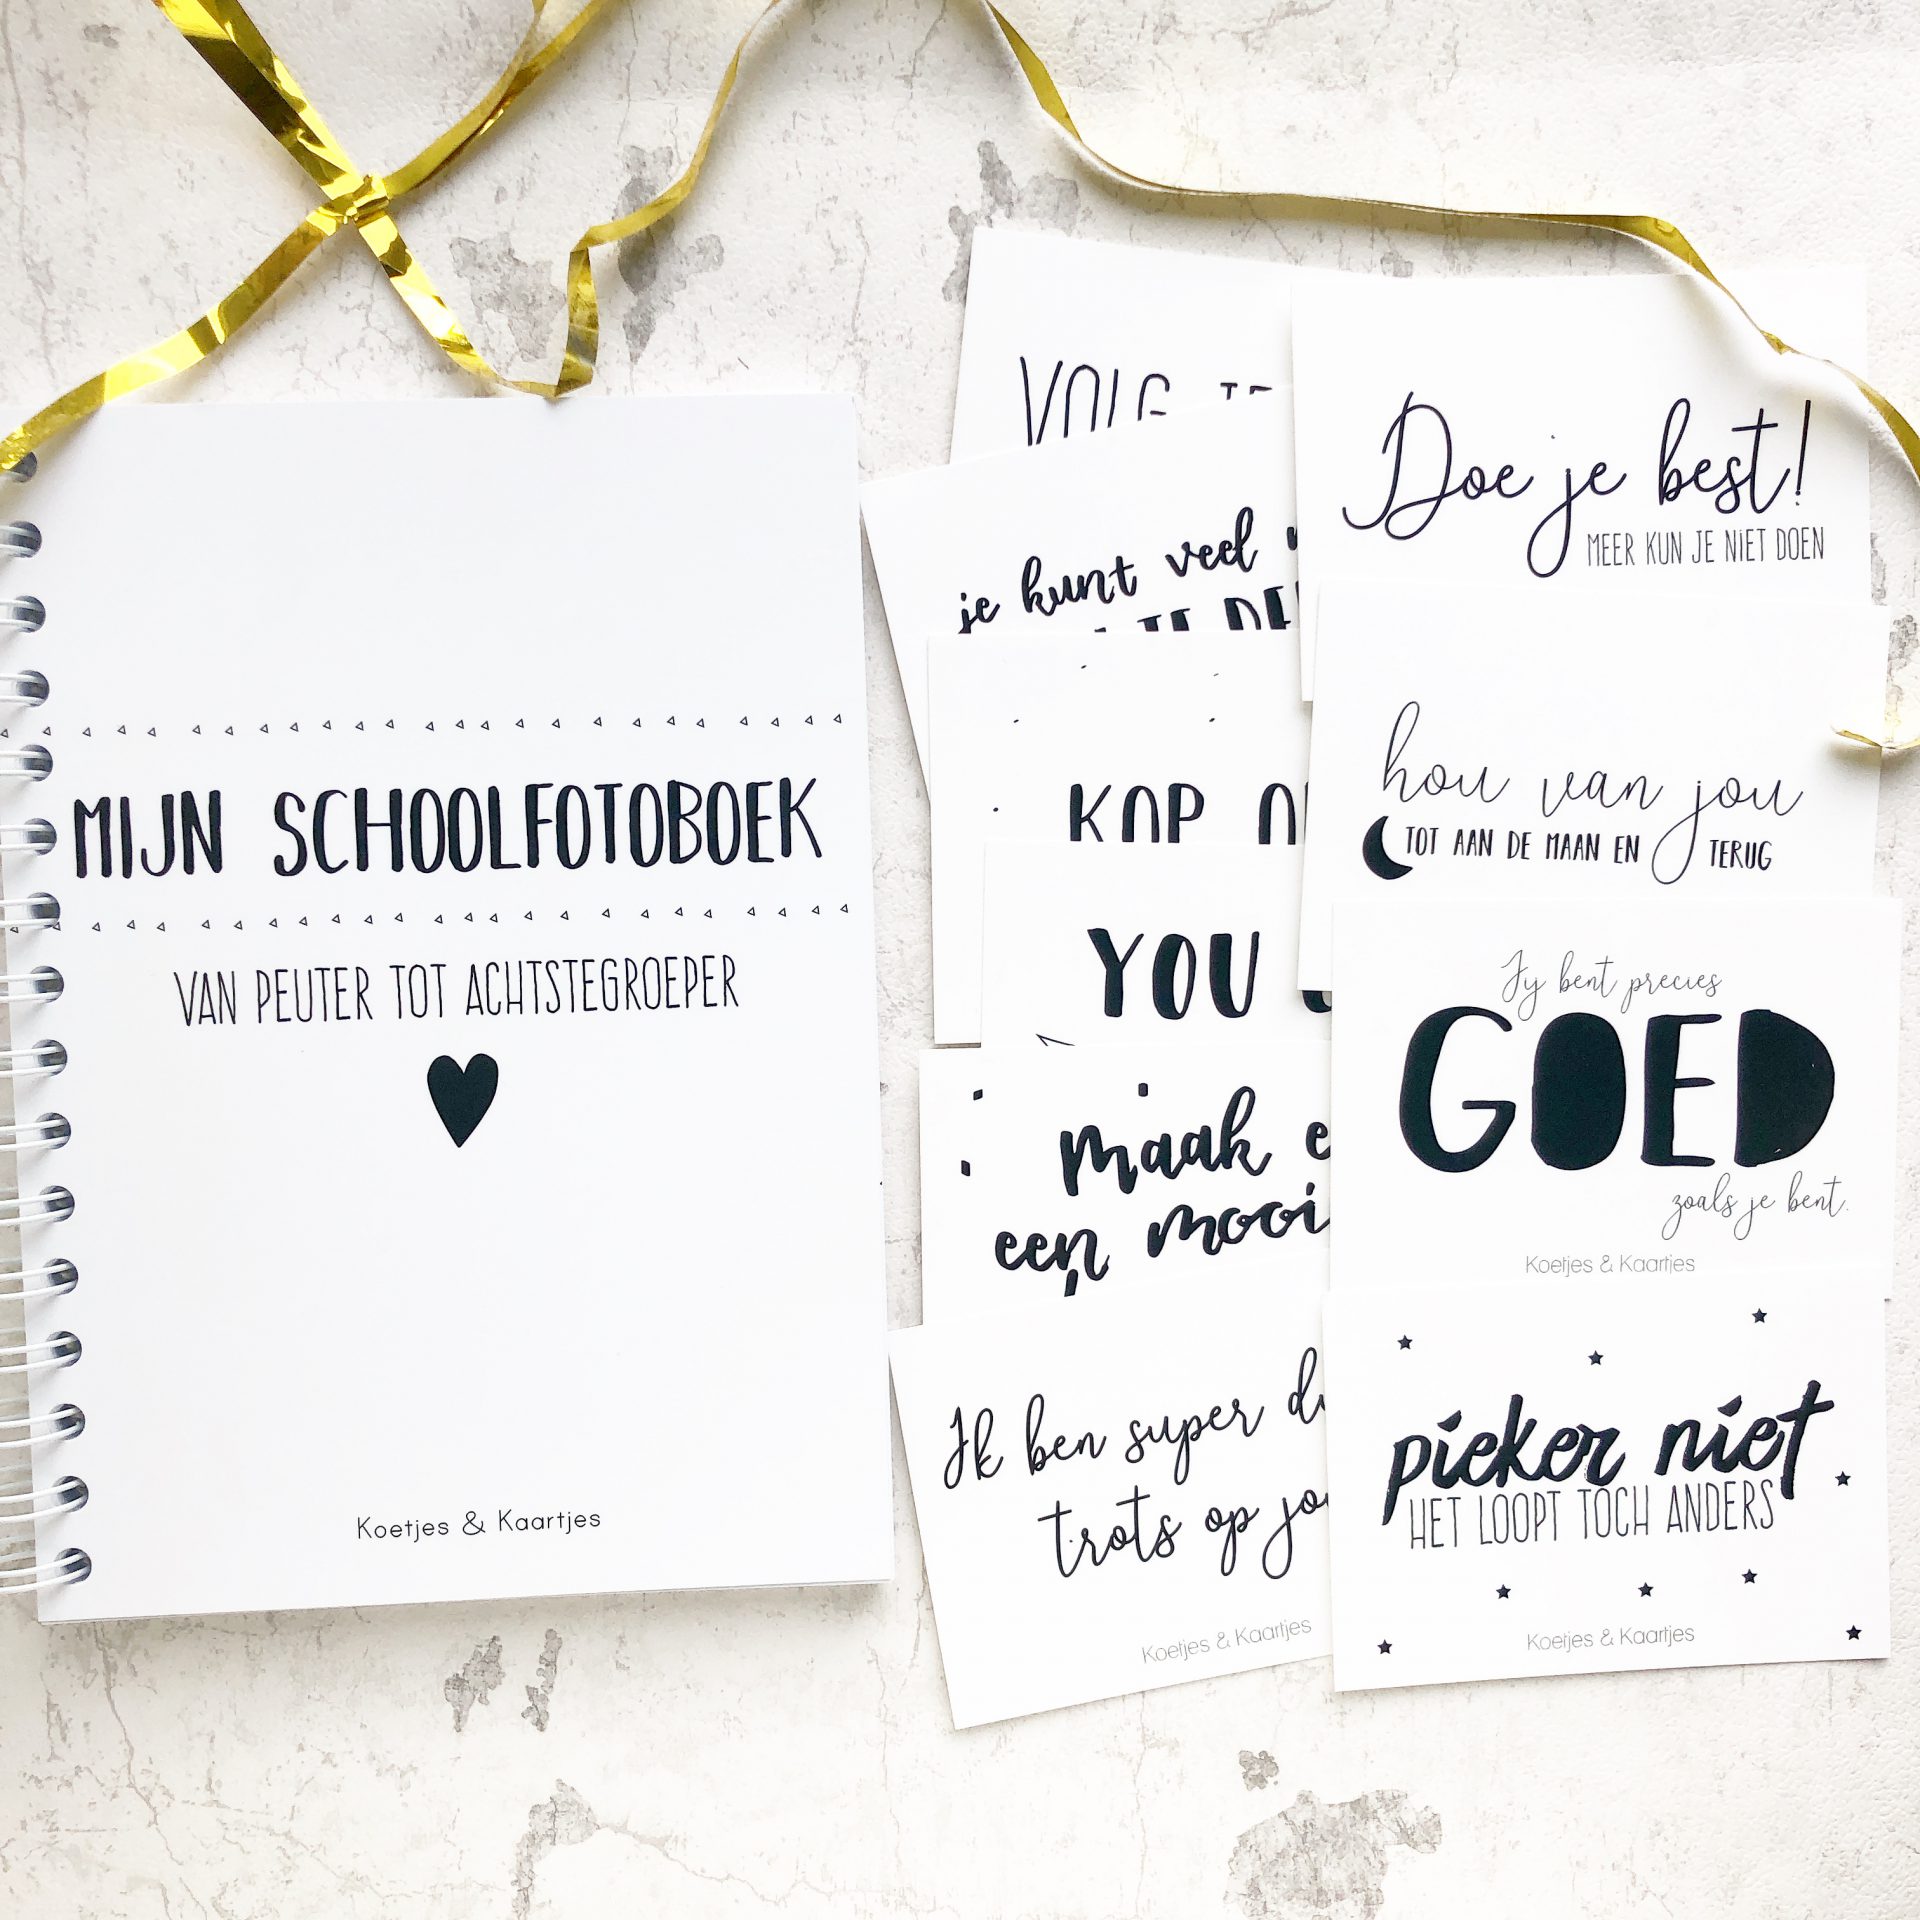 MIJN SCHOOLFOTOBOEK
VAN PEUTER TOT ACHTSTEGROEPER
Koetjes & Kaartjes
VOLG
je kunt veel
KAP
YOU
maak
een mooi
Ik ben super
trots op
Koetjes & Kaartjes
Doe je best!
MEER KUN JE NIET DOEN
hou van jou
TOT AAN DE MAAN EN TERUG
Jij bent precies
GOED
zoals je bent.
Koetjes & Kaartjes
pieker niet
HET LOOPT TOCH ANDERS
Koetjes & Kaartjes